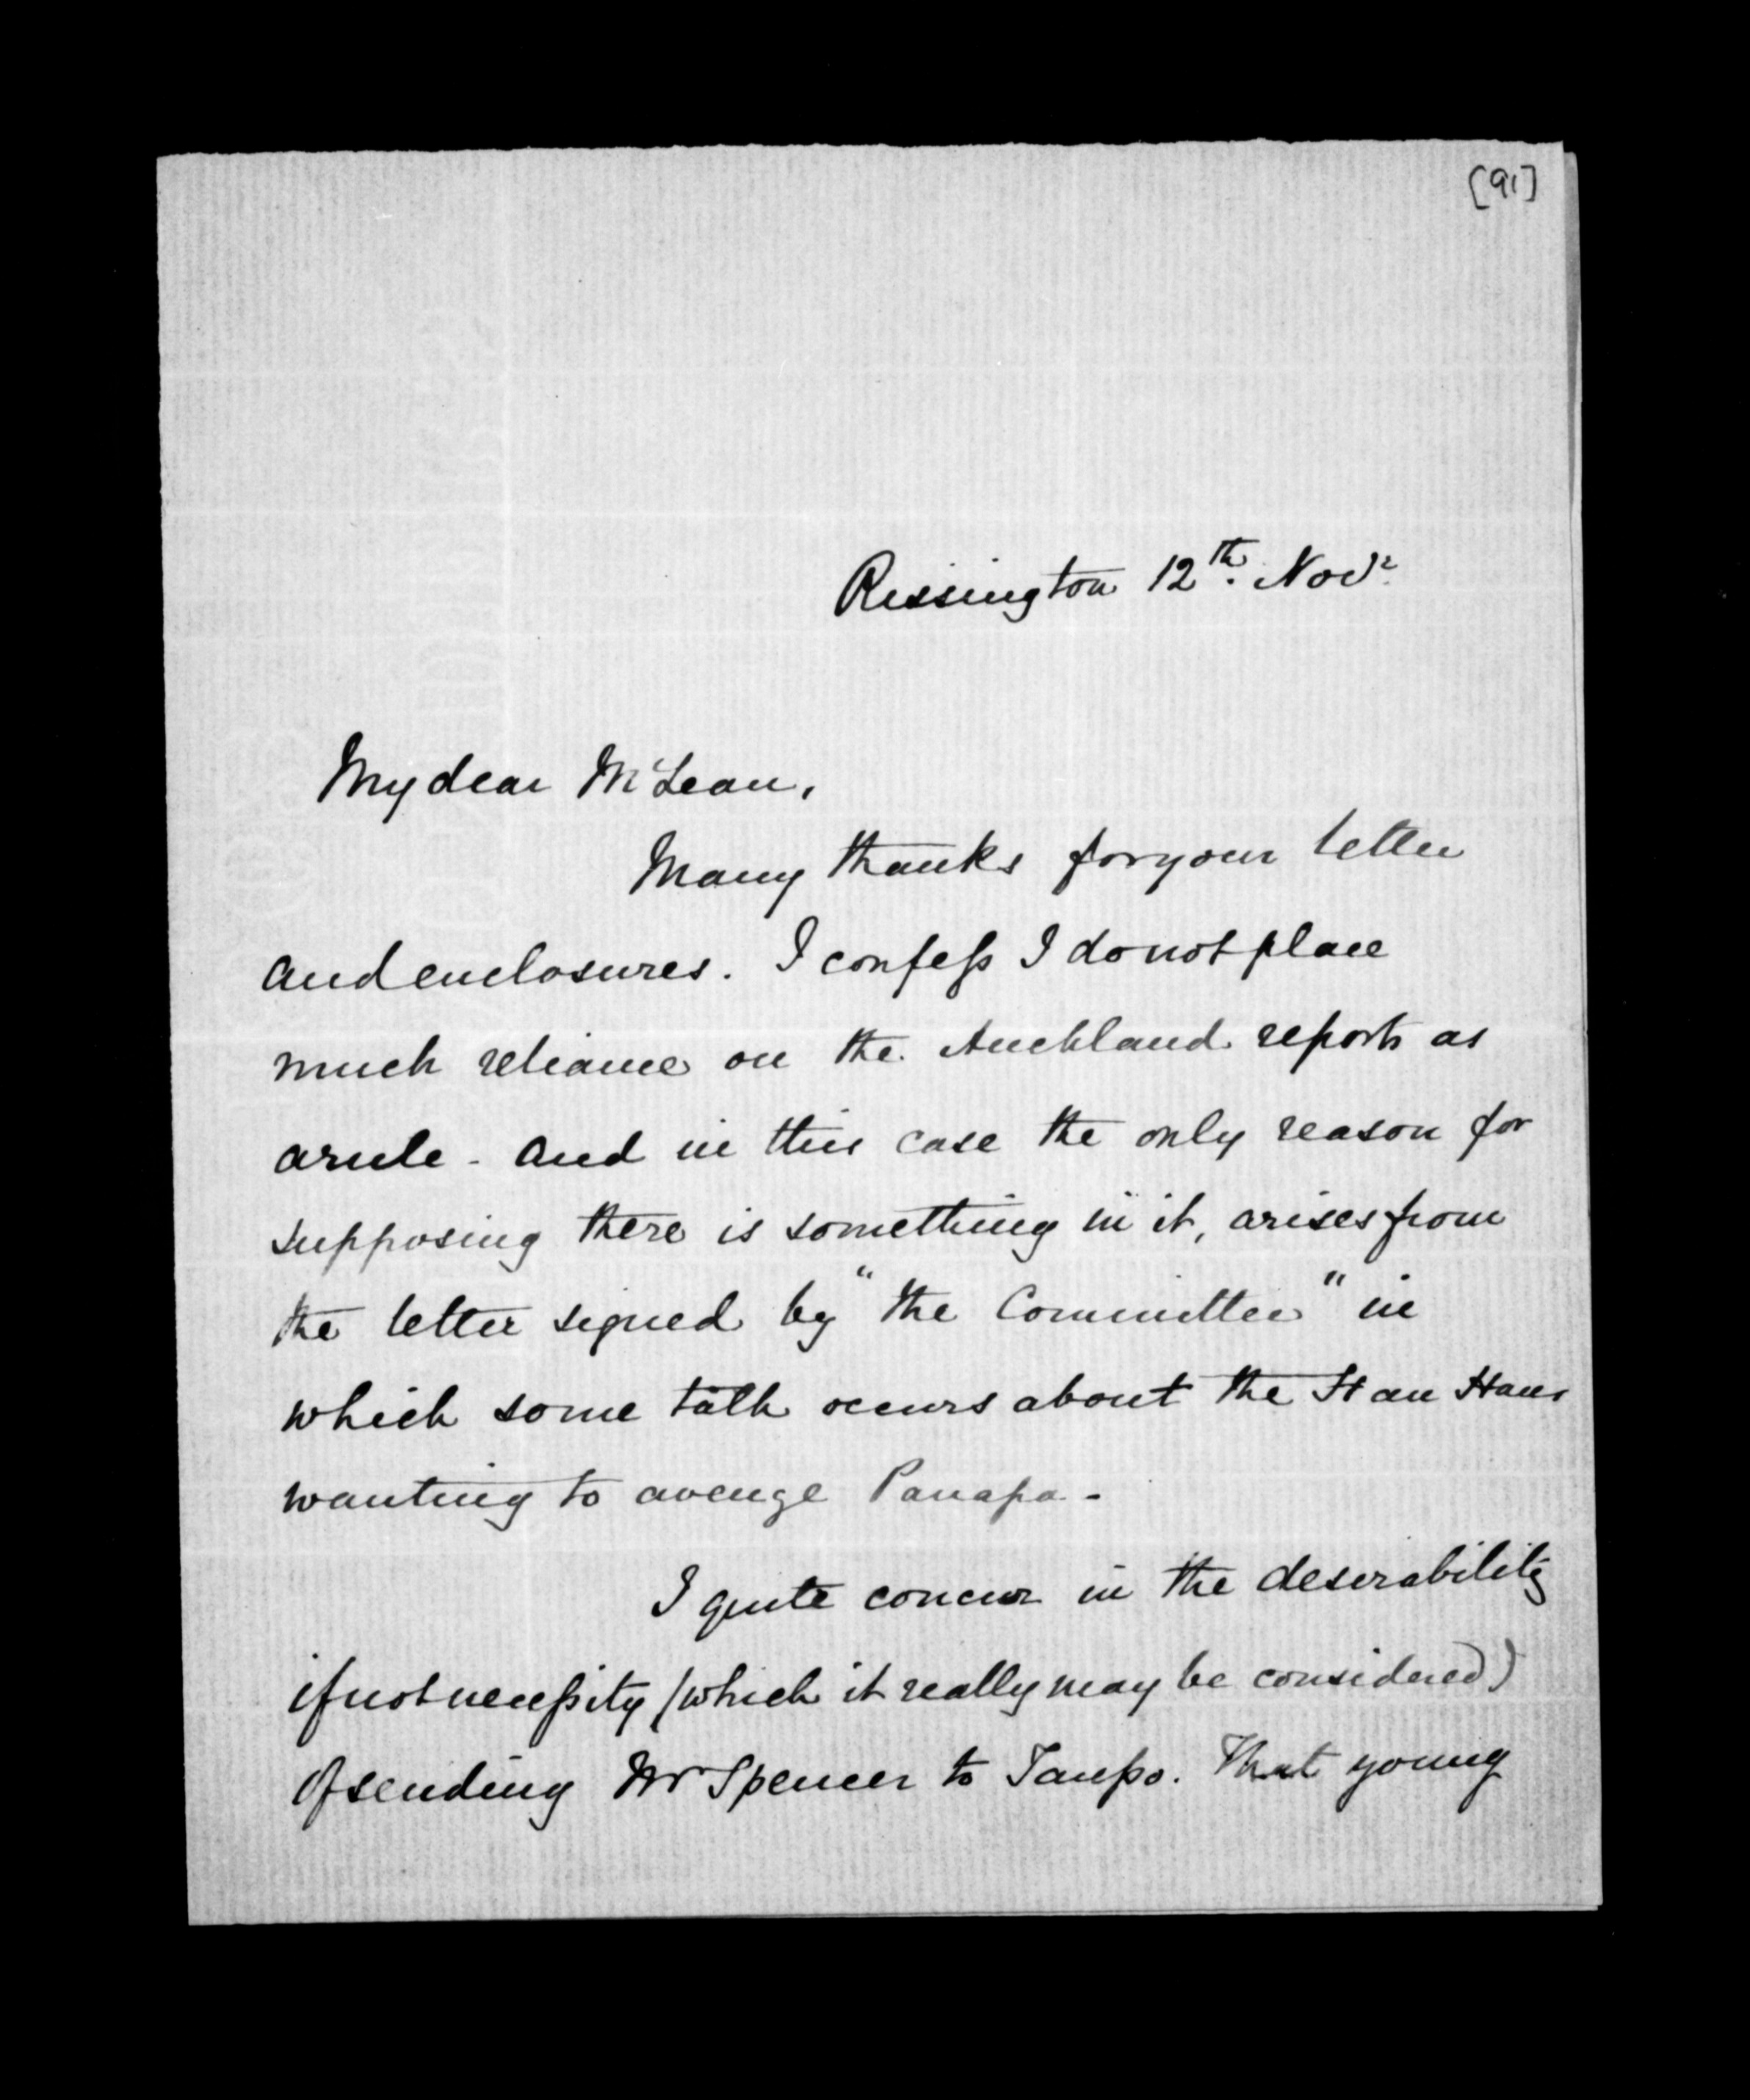 [91]
Rissington 12th. Novr.
My dear McLean,
Many thanks for your letter
and enclosures. I confess I do not place
much reliance on the Auckland reports as
a rule - and in this case the only reason for
supposing there is something in it, arises from
the letter signed by "the Committee" in
which some talk occurs about the Hau Haus
wanting to avenge Panapa -
I quite concur in the desirability
if not necessity (which it really may be considered)
of sending Mr Spencer to Taupo. That young